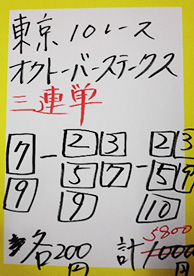 東京10レース
オクトーバーステークス
三連単
7 - 2 3 - 5 9
9 5 7 10
9
各200円 計5800円
1000